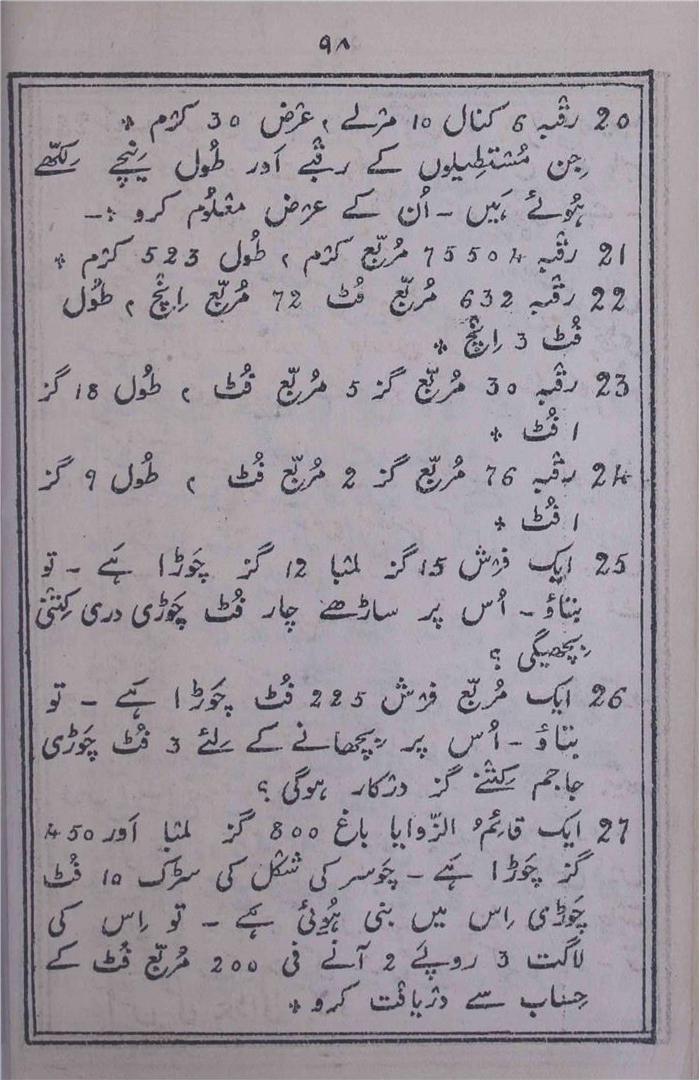 ۹۸
20 رقبہ 6 کنال 10 مرلے ، عرض 30 کرم *
جن مستطیلوں کے رقبے اور طول نیچے لکھے
ہوئے ہیں - اُن کے عرض معلوم کرو :-
21 رقبہ 75504 مربع کرم ، طول 523 کرم *
22 رقبہ 632 مربع فٹ 72 مربع اِنچ ، طول
فٹ 3 اِنچ *
23 رقبہ 30 مربع گز 5 مربع فٹ ، طول 18 گز
1 فٹ *
24 رقبہ 76 مربع گز 2 مربع فٹ ، طول 9 گز
1 فٹ *
25 ایک فرش 15 گز لمبا 12 گز چوڑا ہے - تو
بتاؤ - اُس پر ساڑھے چار فٹ چوڑی دری کتنی
بچھیگی ؟
26 ایک مربع فرش 225 فٹ چوڑا ہے - تو
بتاؤ - اُس پر بچھانے کے لئے 3 فٹ چوڑی
جاجم کتنے گز درکار ہوگی ؟
27 ایک قائم الزّوایا باغ 800 گز لمبا اور 450
گز چوڑا ہے - چوسر کی شکل کی سڑک 10 فٹ
چوڑی اِس میں بنی ہوئی ہے - تو اِس کی
لاگت 3 روپے 2 آنے فی 200 مربع فٹ کے
حساب سے دریافت کرو *